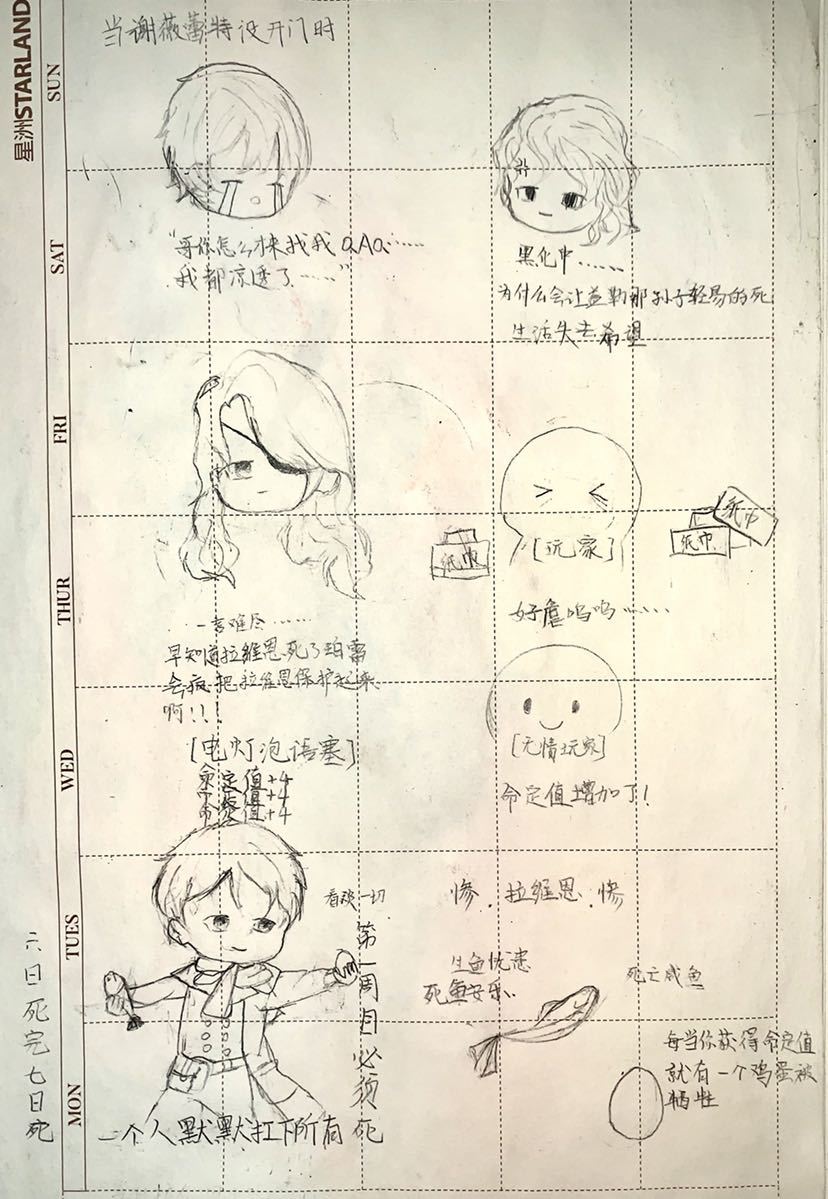 星洲STARLAND
SUN
SAT
FRI
THUR
WED
TUES
MON
当谢薇蕾特没开门时
"哥你怎么才来找我QAQ……
我都凉透了……"
黑化中……
为什么会让益勒那孙子轻易的死
生活失去希望
一言难尽……
早知道拉维恩死了珀雷
会疯把拉维恩保护起来
啊!!!
纸巾
[玩家]
纸巾
纸巾
好虐呜呜……
[无情玩家]
命定值增加了!
[电灯泡语塞]
命定值+4
命定值+4
命定值+4
看破一切
第一周目必须死
一个人默默扛下所有
惨.拉维恩.惨
生鱼忧患
死鱼安乐.
死亡咸鱼
每当你获得命定值
就有一个鸡蛋被
牺牲
六日死完七日死